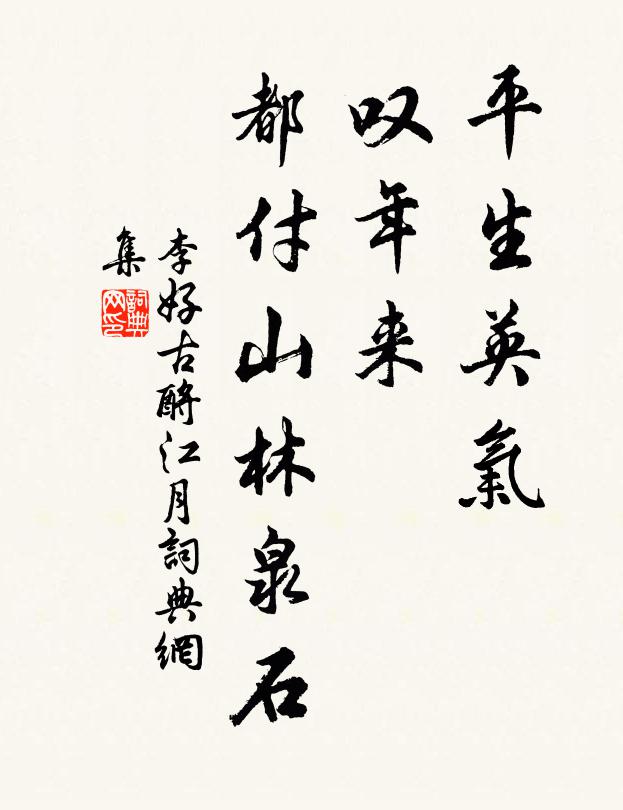 平生英氣
叹年来
都付山林泉石
李好古酹江月詞典網
集
詞典网印